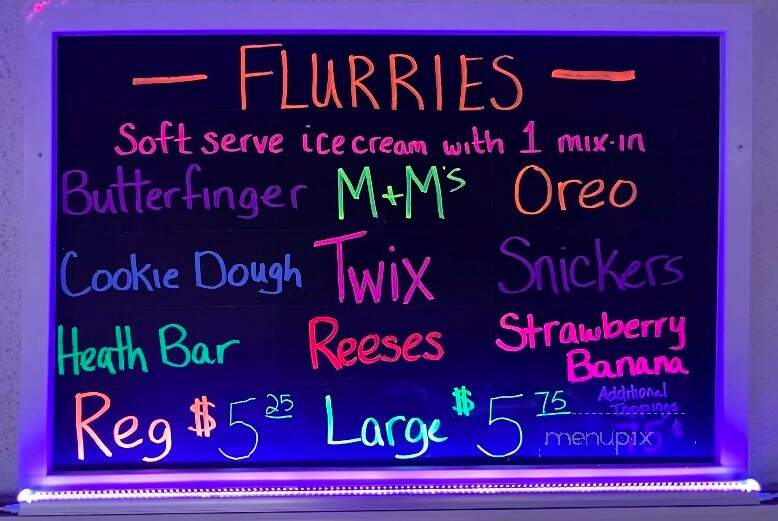 — FLURRIES —
Soft serve ice cream with 1 mix-in
Butterfinger M+M's Oreo
Cookie Dough Twix Snickers
Heath Bar Reeses Strawberry
Banana
Reg $5 25 Large $5 75
Additional
Toppings
menupix